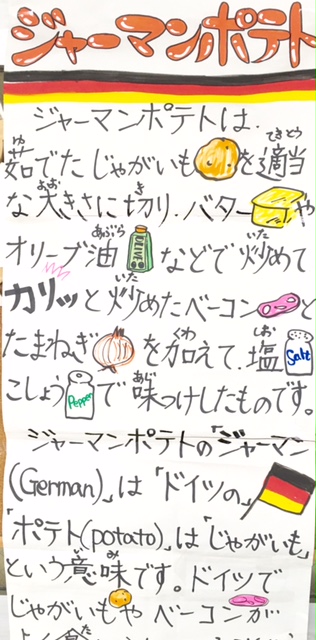 ジャーマンポテト
ジャーマンポテトは、
茹でたじゃがいもを適当
な大きさに切り、バターや
オリーブ油 OLIVE などで炒めて
カリッと炒めたベーコンと
たまねぎを加えて、塩 Salt
こしょう Pepper で味つけしたものです。
ジャーマンポテトの「ジャーマン
(German)」は「ドイツの」
「ポテト(potato)」は「じゃがいも」
という意味です。ドイツで
じゃがいもやベーコンが